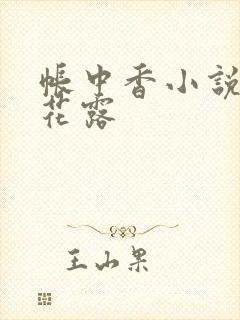 帳中香小說
花露
王山果